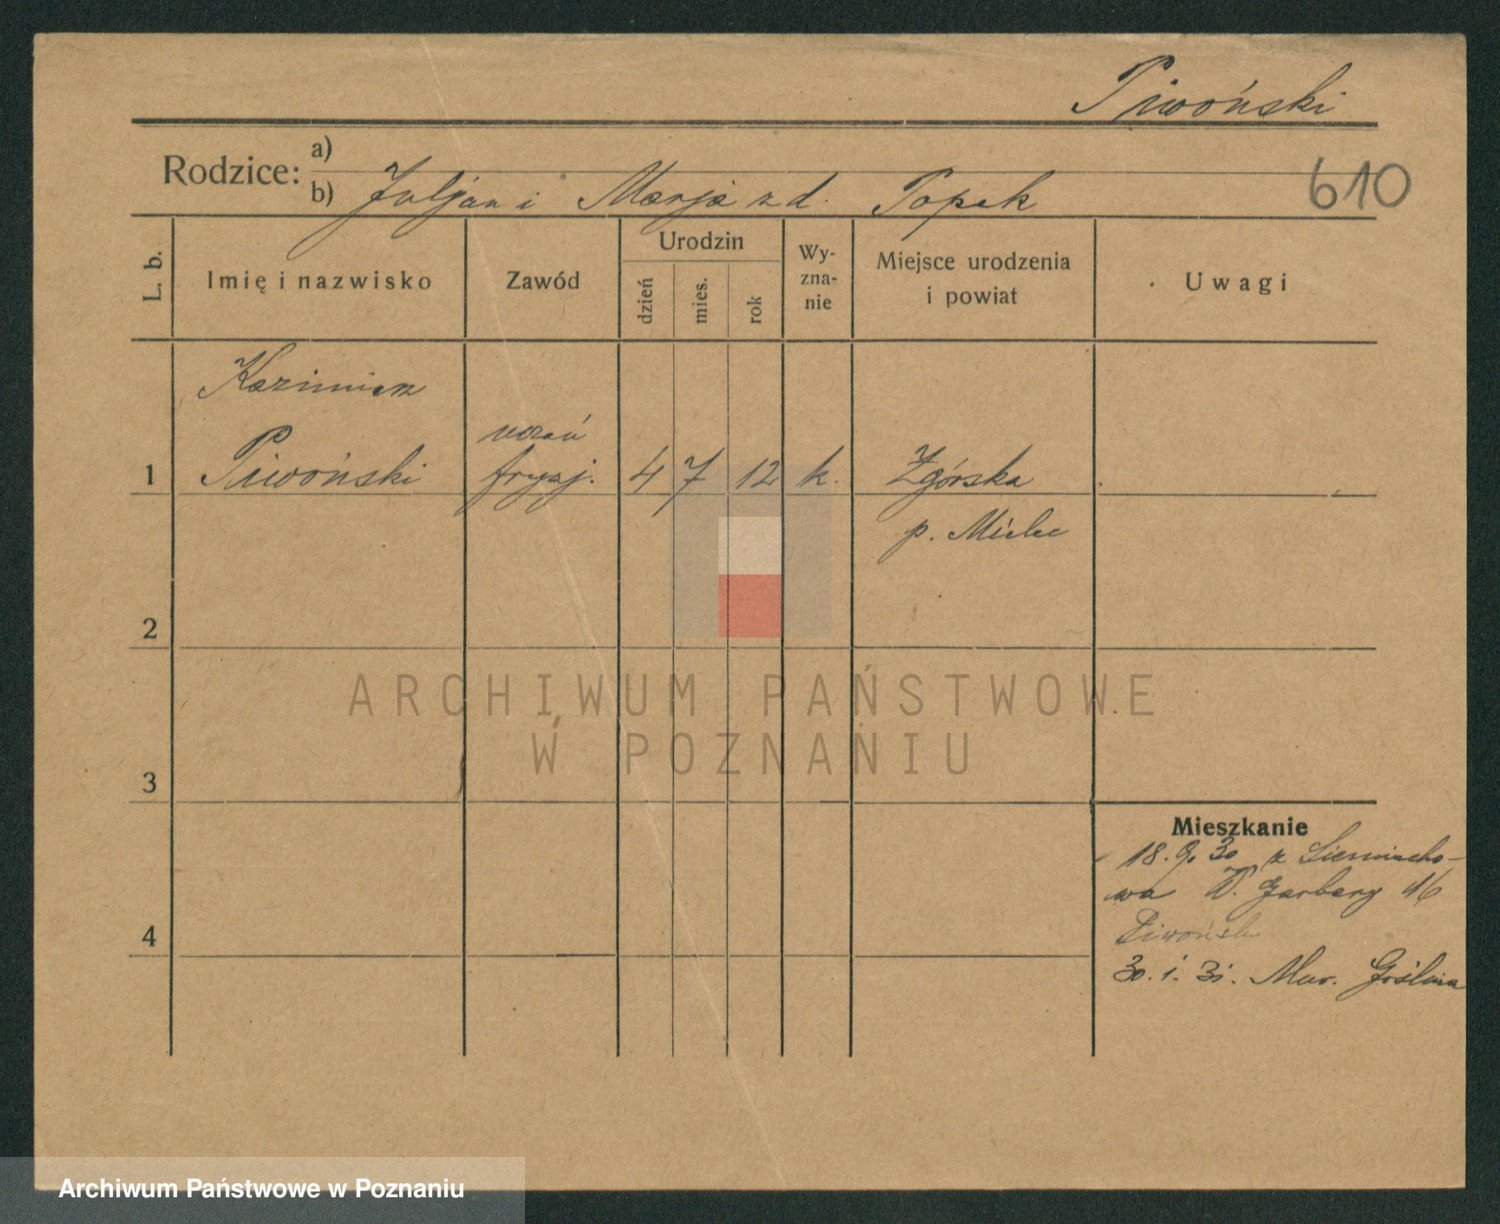 Piwoński
Rodzice: a)
b) Juljan i Marja z d. Popek
610
L. b.
Imię i nazwisko
Zawód
Urodzin
dzień
mies.
rok
Wy-
zna-
nie
Miejsce urodzenia
i powiat
Uwagi
Kazimierz
1 Piwoński
uczeń
fryzj.
4 7 12 k.
Zgórsko
p. Mielec
2
3
4
Mieszkanie
18. 9. 30 z
wa W. Garbary 16
Piwońsk
30. 1. 31. Mur. Goślina
ARCHIWUM PAŃSTWOWE
W POZNANIU
Archiwum Państwowe w Poznaniu